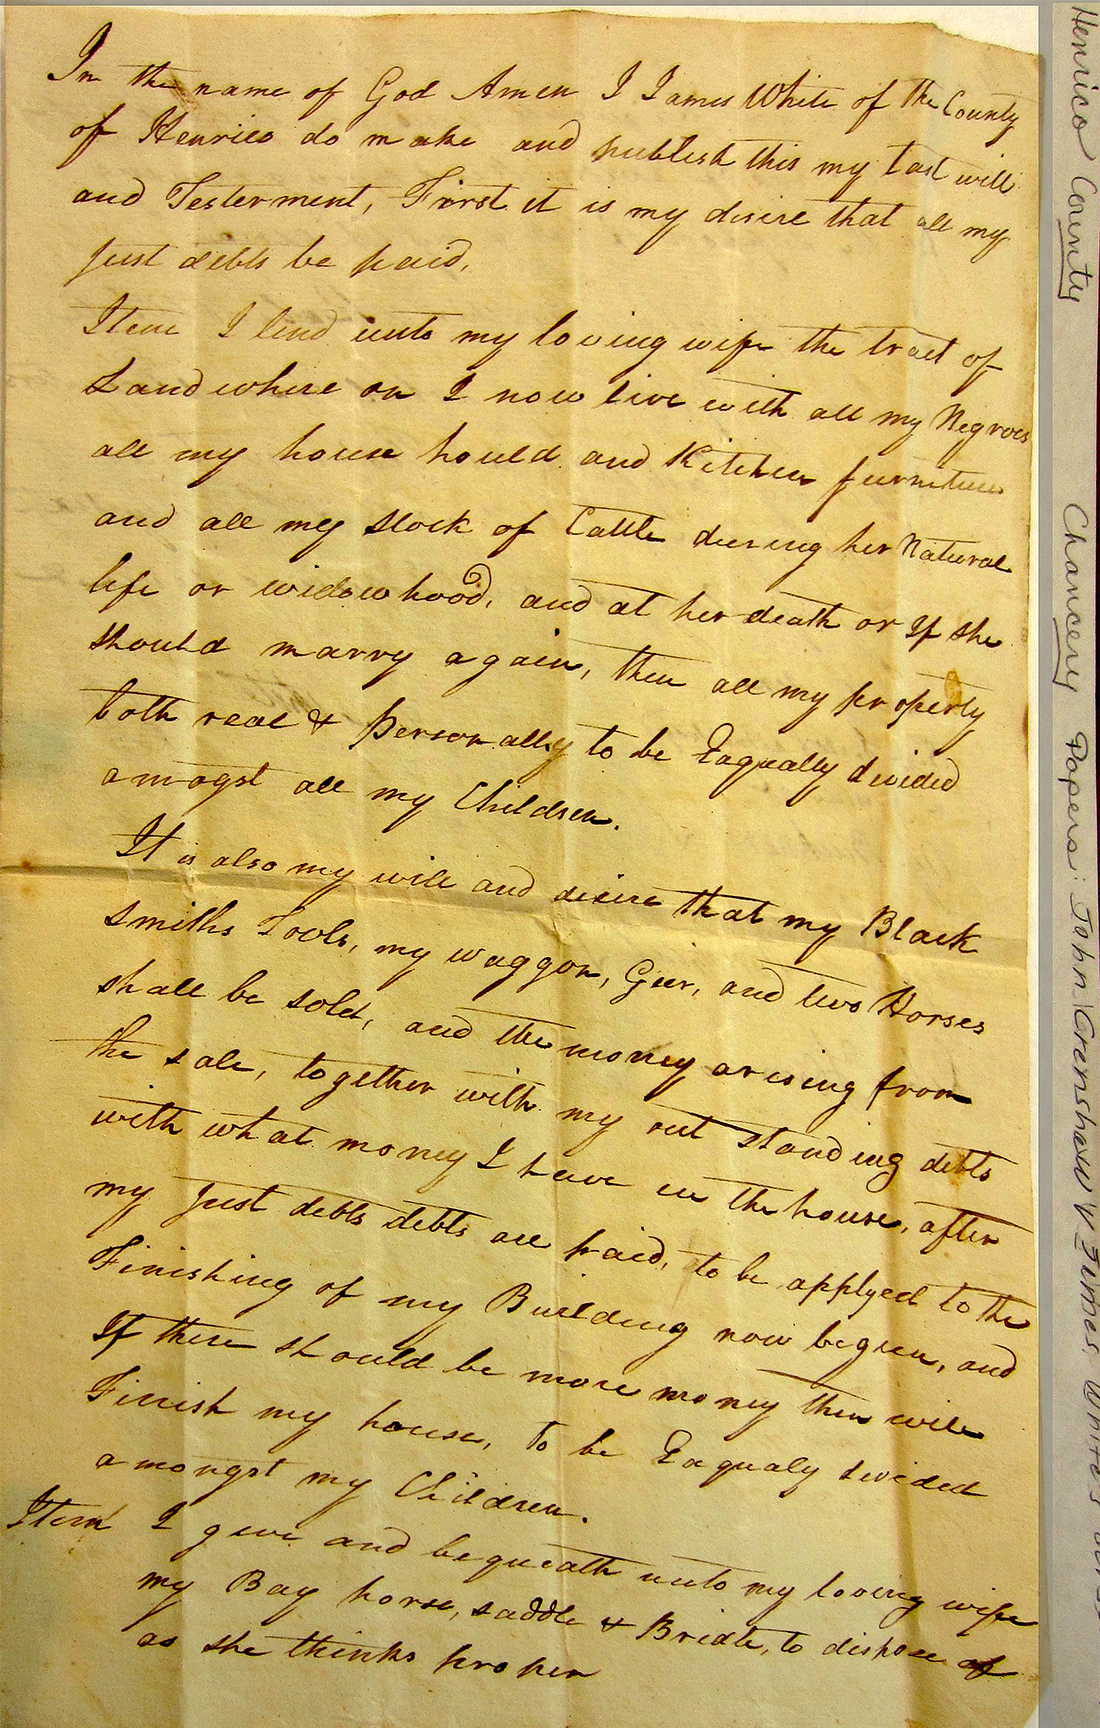 In the name of God Amen I James White of the County
of Henrico do make and publish this my last will
and Testerment, First it is my disire that all my
just debts be paid,
Item I lend unto my loving wife the tract of
Land where on I now live with all my Negroes
all my house hould and Kitchen furniture
and all my stock of Cattle during her Natural
life or widowhood, and at her death or If she
should marry again, then all my property
both real & personally to be Eaqually divided
amogst all my Children.
It is also my will and desire that my Black
smiths Tools, my waggon, Geer, and two Horses
shall be sold, and the money arising from
the sale, together with my out standing debts
with what money I have in the house, after
my just debts debts are paid, to be applyed to the
Finishing of my Building now begun, and
If there should be more money then will
Finish my house, to be Eaqualy divided
amongst my Children.
Item I give and bequeath unto my loving wife
my Bay horse, saddle & Bridle, to dispose of
as she thinks proper
Henrico County Chancery Papers: John Crenshaw v James White's